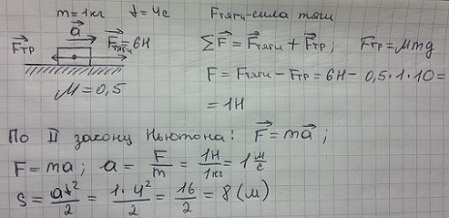 m=1кг t=4с Fтяги-сила тяги
a
Fтр Fтяги=6Н ΣF=Fтяги+Fтр; Fтр=μmg
F=Fтяги-Fтр=6Н-0,5·1·10=
μ=0,5 =1Н
По II закону Ньютона: F=ma;
F=ma; a=F/m=1Н/1кг=1м/с
S=at²/2=1·4²/2=16/2=8(м)